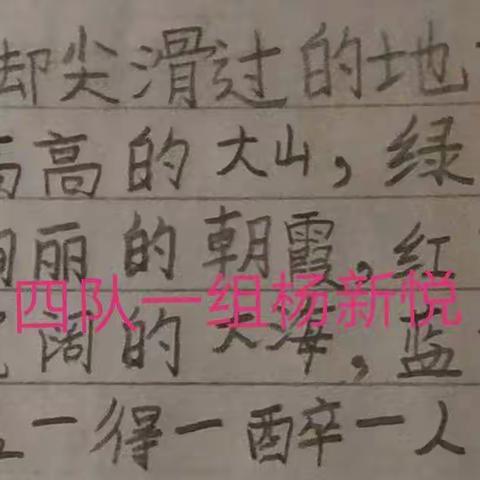 却尖滑过的地
高高的大山,绿
绚丽的朝霞,红
四队一组杨新悦
阔的大海,蓝
一得一醉一人